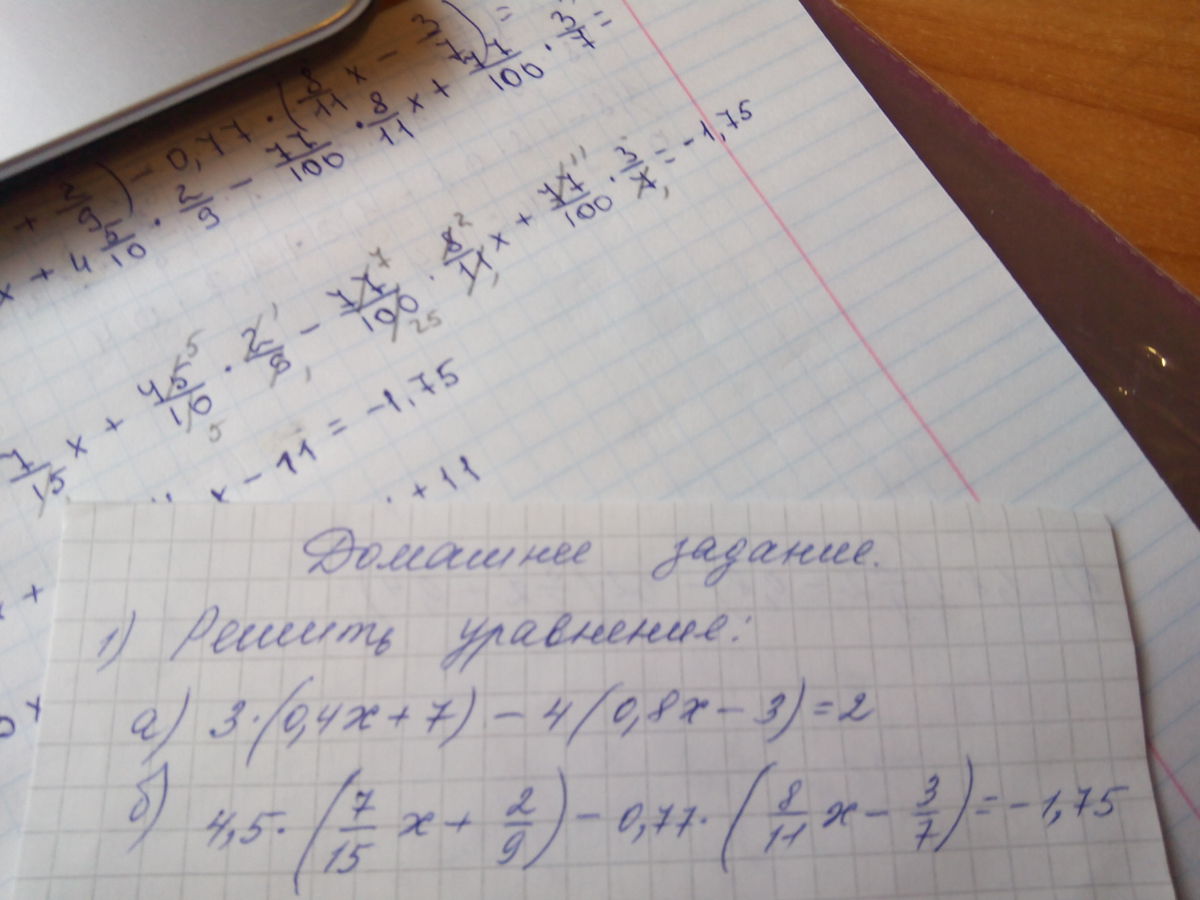 + 2/9) - 0,77 · (8/11 x - 3/7) =
x + 4 5/10 · 2/9 - 77/100 · 8/11 x + 77/100 · 3/7 =
7/15 x + 45/10 · 2/9 - 77/100 · 8/11 x + 77/100 · 3/7 = -1,75
x - 11 = -1,75
+ 11
Домашнее задание.
1) Решить уравнение:
а) 3·(0,4x + 7) - 4(0,8x - 3) = 2
б) 4,5·(7/15 x + 2/9) - 0,77·(8/11 x - 3/7) = -1,75